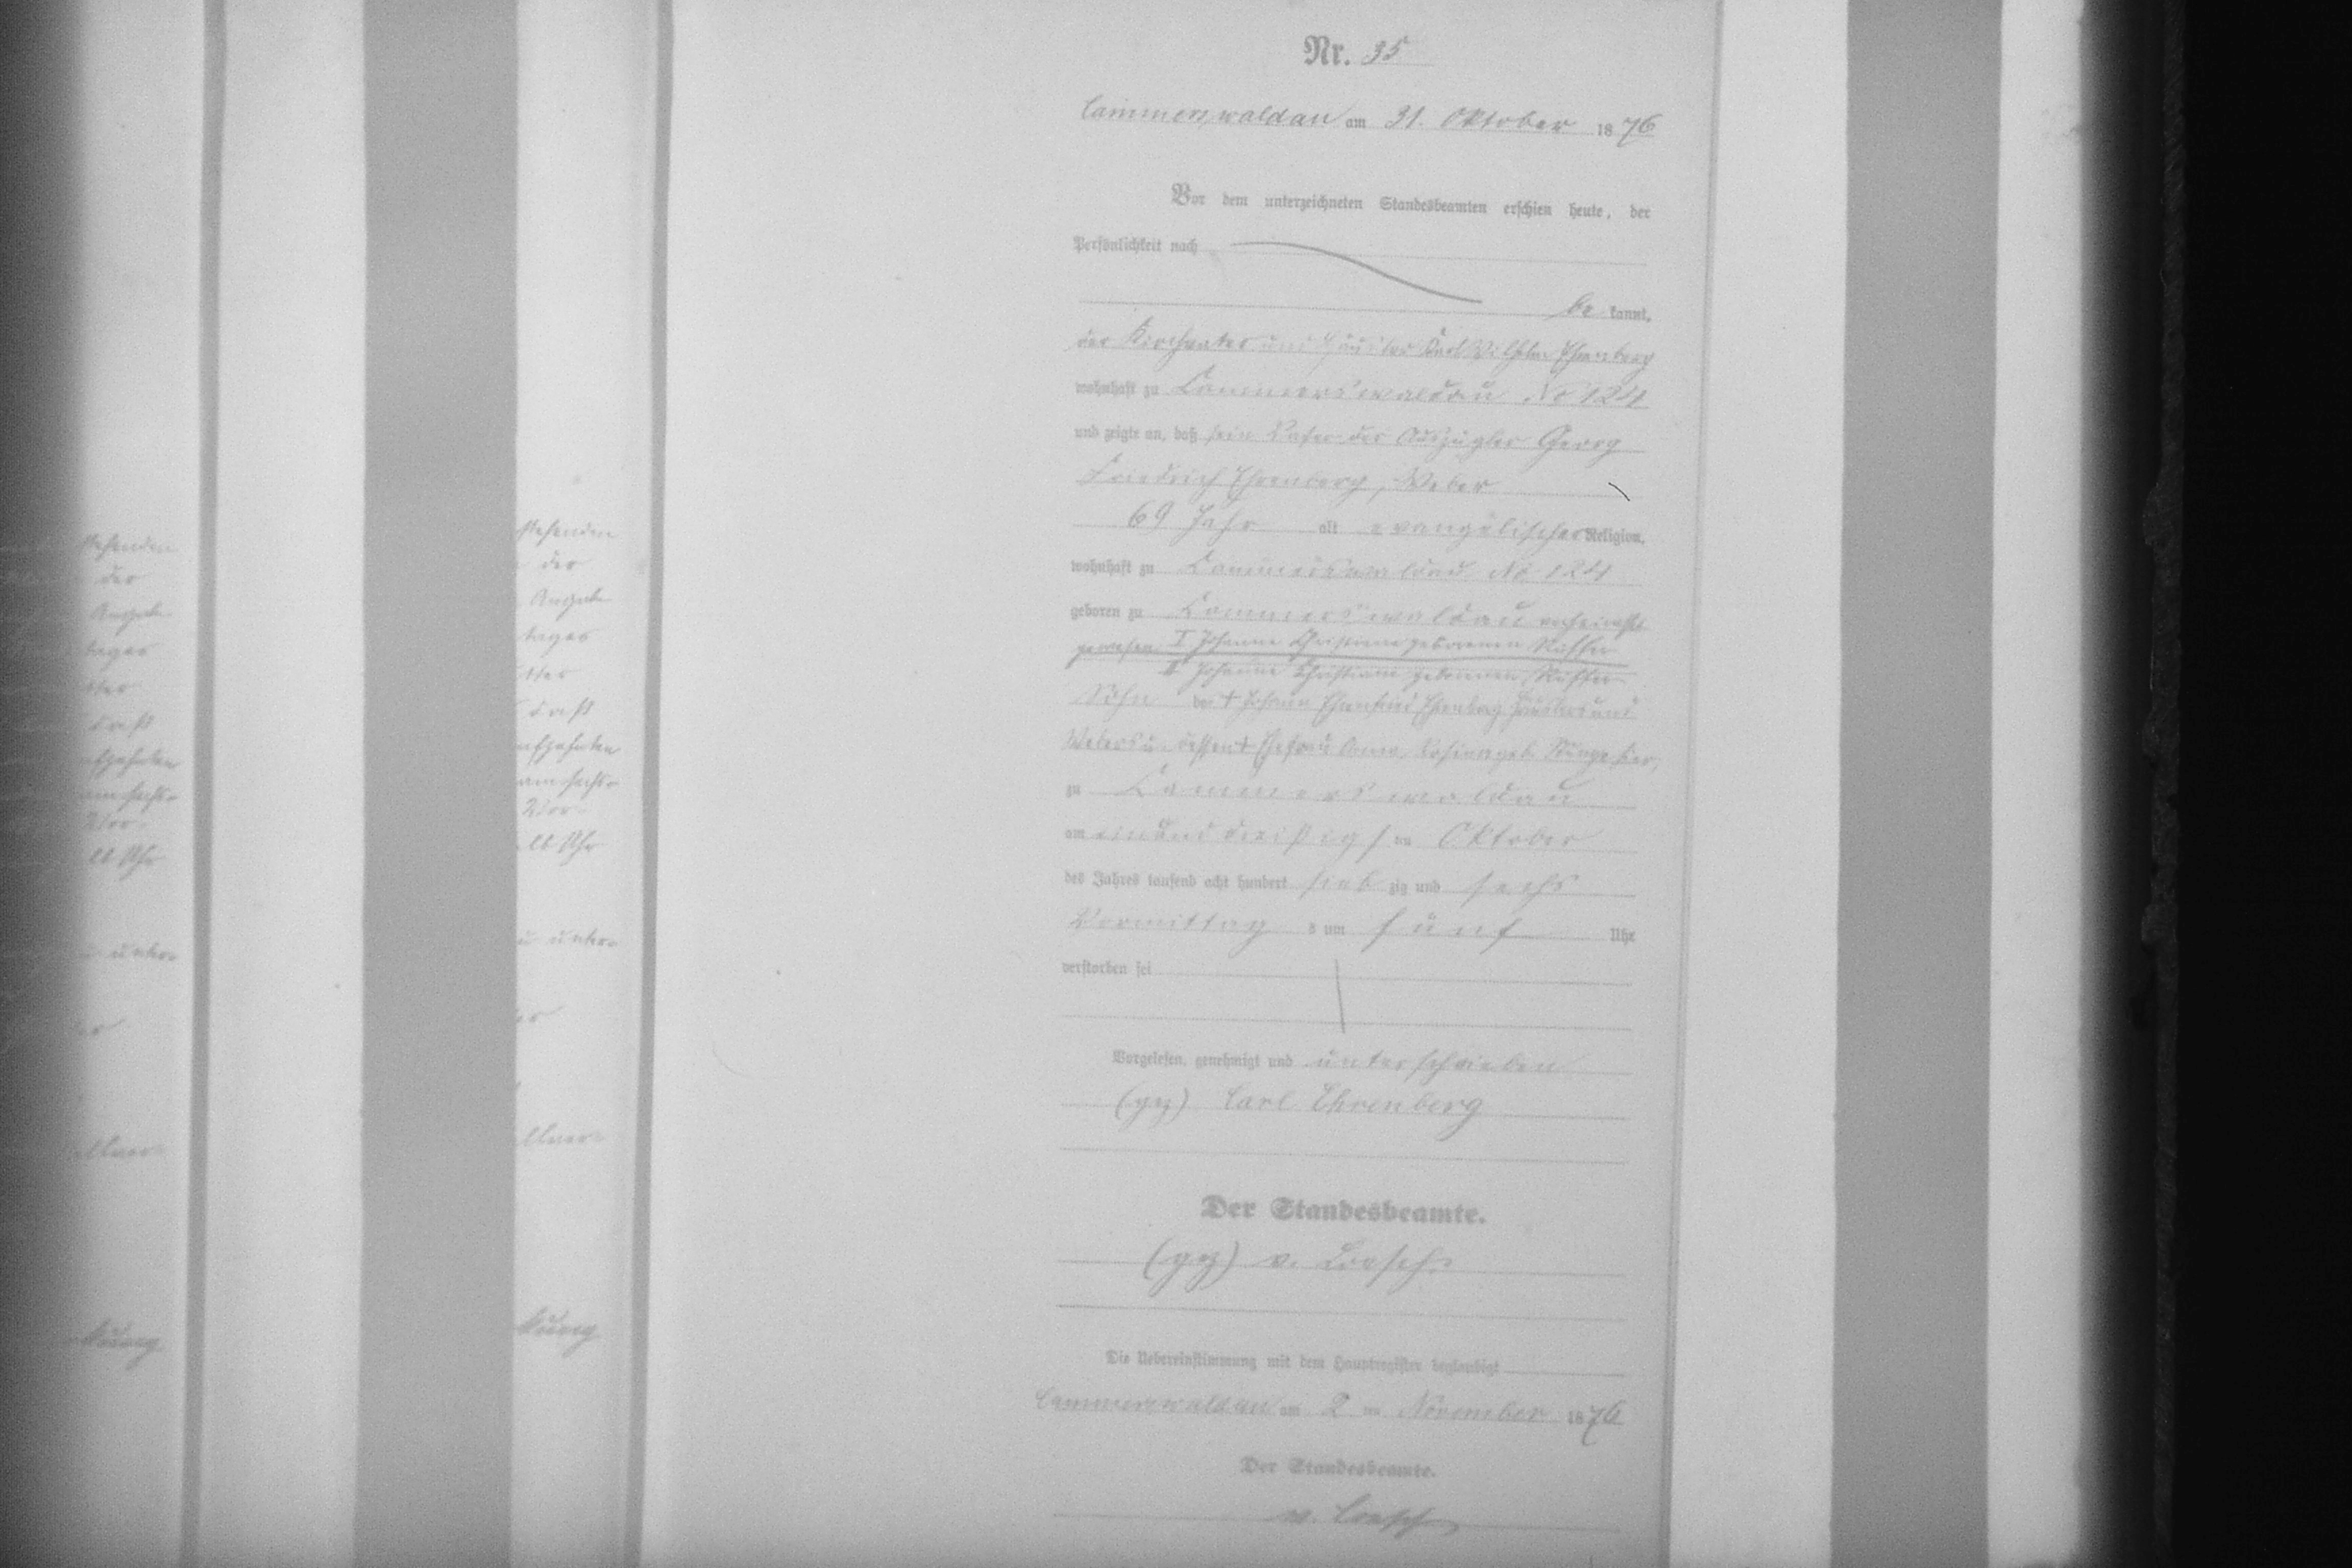 Nr. 35
Cammerswaldau am 31. Oktober 1876
Vor dem unterzeichneten Standesbeamten erschien heute, der
Persönlichkeit nach
be kannt,
der Kirchvater und Häusler Karl Wilhelm Ehrenberg
wohnhaft zu Cammerswaldau No 124
und zeigte an, daß sein Vater der Auszügler Georg
Friedrich Ehrenberg, Weber
69 Jahr alt evangelischer Religion,
wohnhaft zu Cammerswaldau No 124
geboren zu Cammerswaldau verheirathet
gewesen I Johanne Christiane geborenen
II Johanne Christiane geborenen
Sohn des † Johann Ehrenfried Ehrenberg Häusler und
Webers u. dessen † Ehefrau Anna Rosina geb.
zu Cammerswaldau
am einunddreißigsten Oktober
des Jahres tausend acht hundert sieb zig und sechs
Vormittag s um fünf Uhr
verstorben sei
Vorgelesen, genehmigt und unterschrieben
(gez) Carl Ehrenberg
Der Standesbeamte.
(gez) v. Loesch
Die Uebereinstimmung mit dem Hauptregister beglaubigt
Cammerswaldau am 2 ten November 1876
Der Standesbeamte.
v. Loesch
stehenden
der
Angabe
tages
Vor-
lb Uhr
u unter-